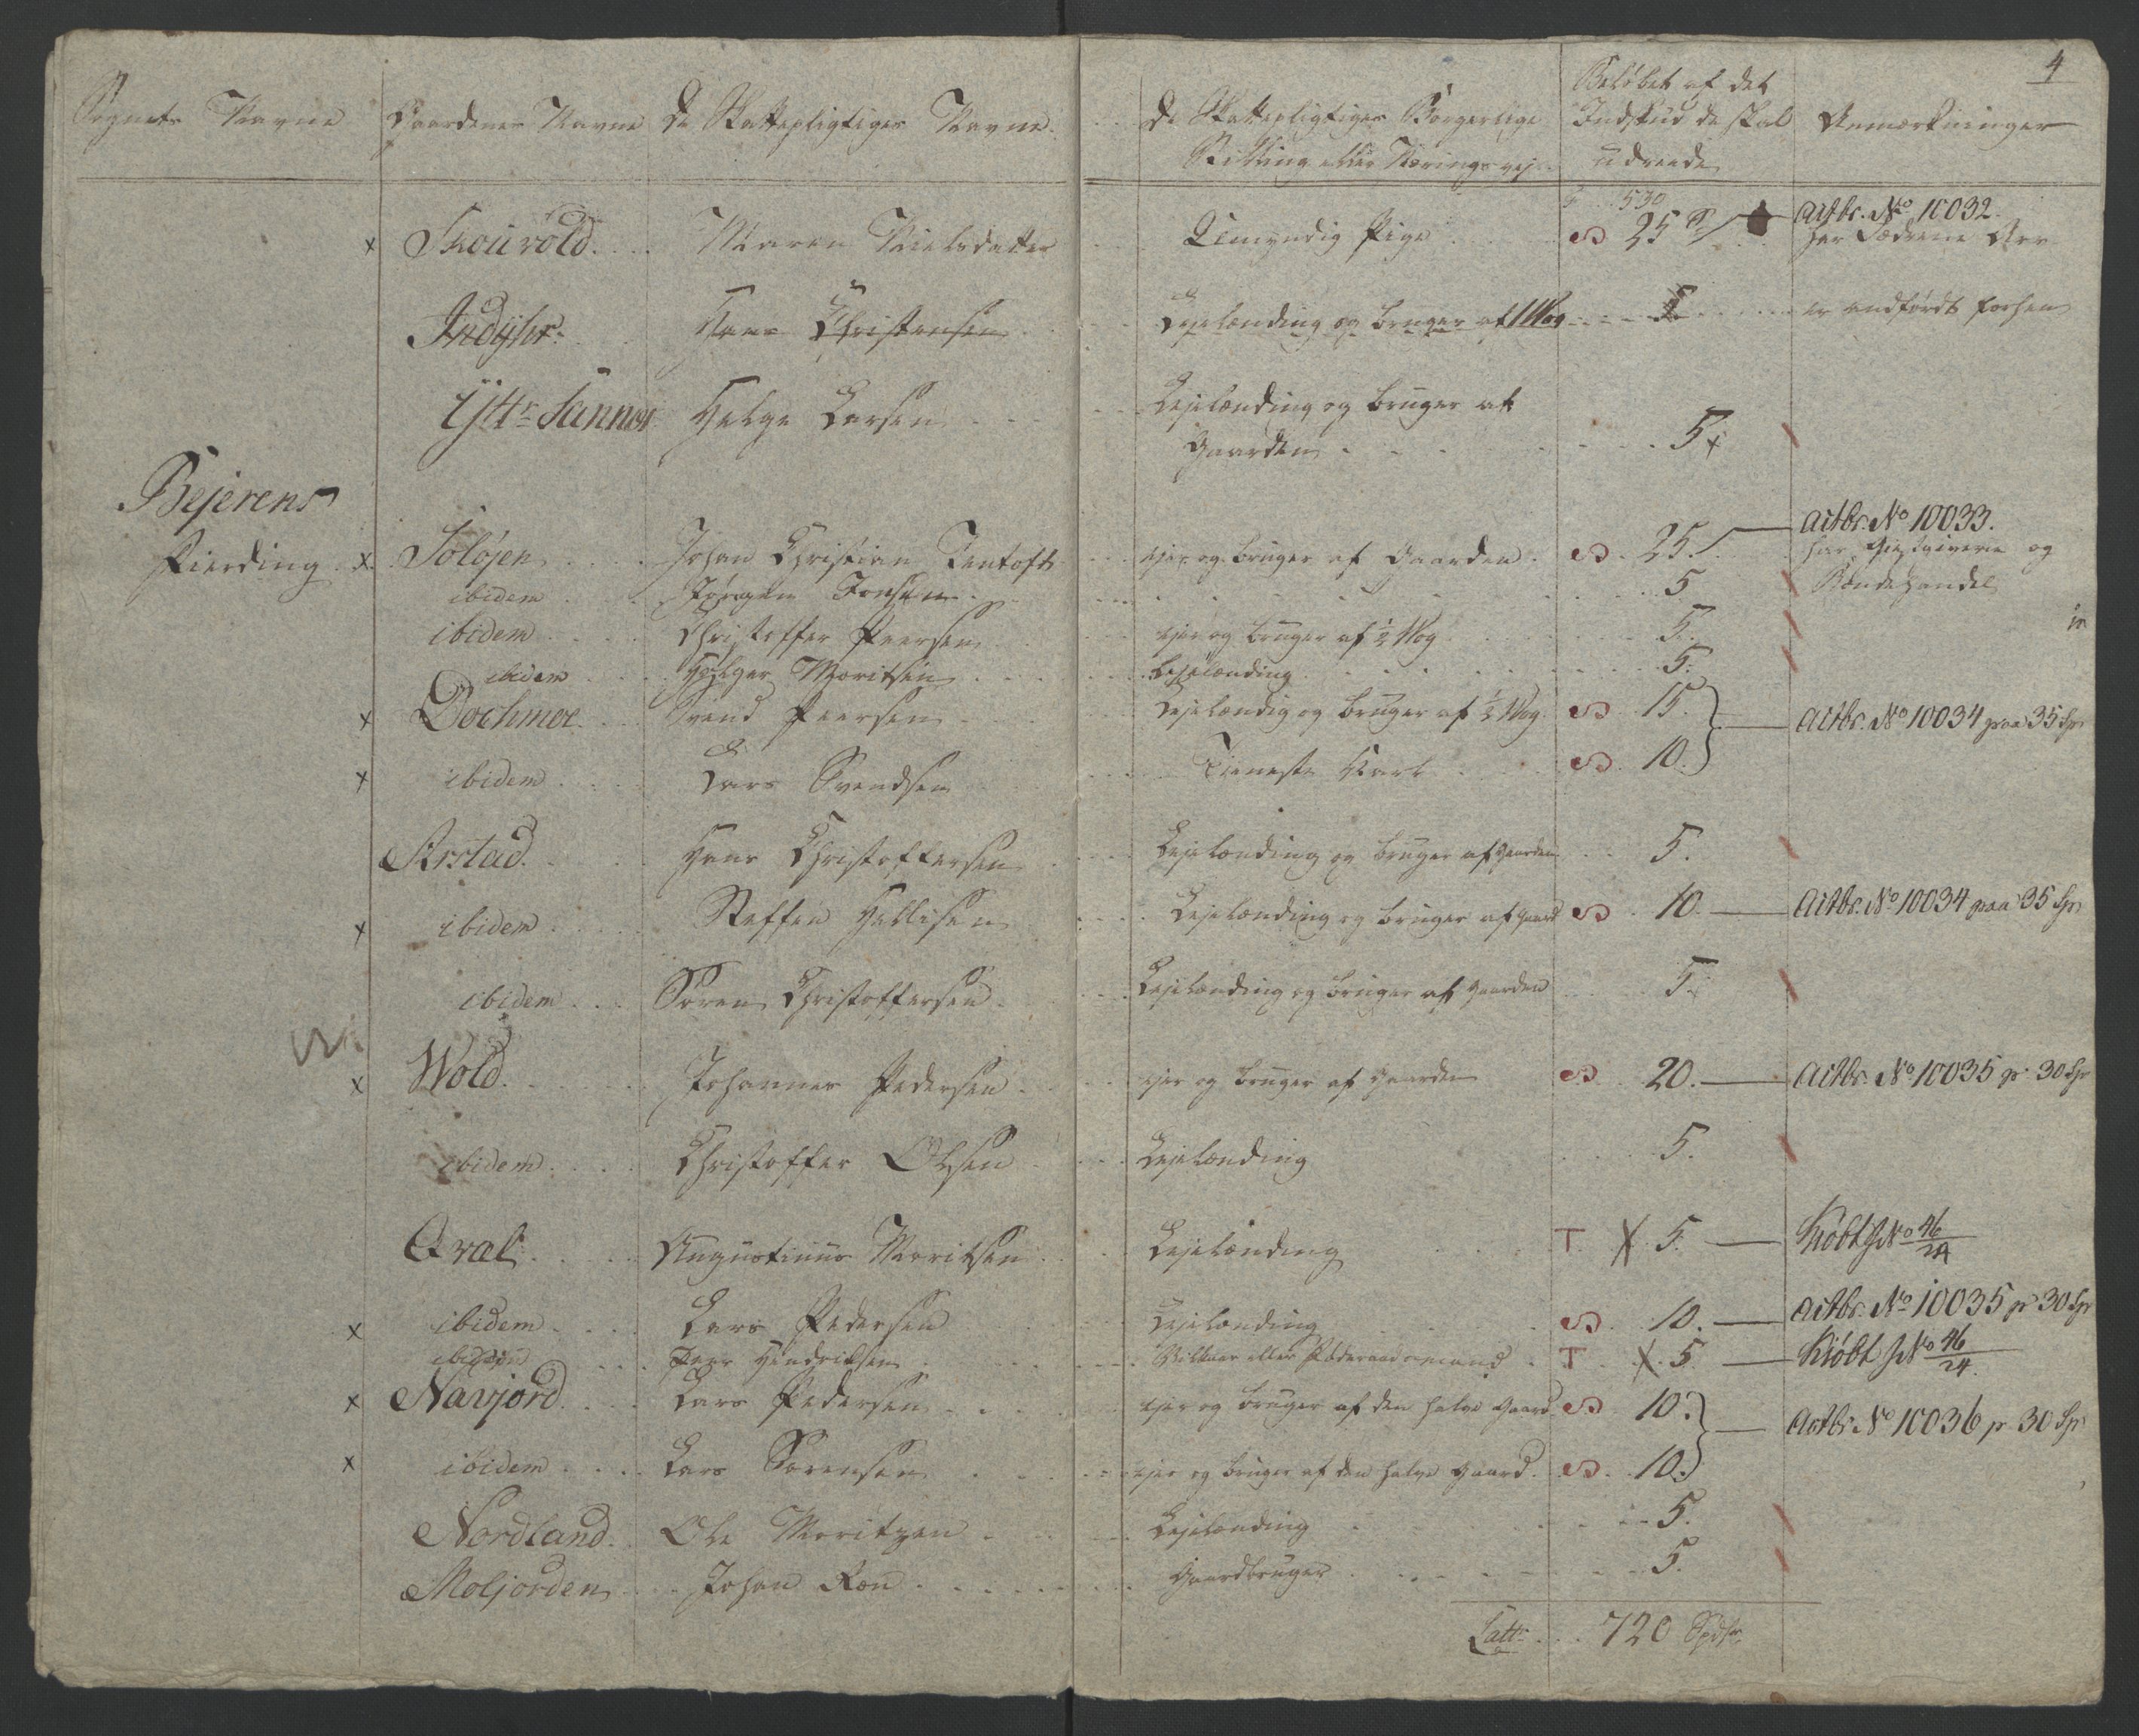 4
Sognets Navne Gaardenes Navne De Skattepligtiges Navne. De Skattepligtiges Borgerlige Stilling eller Næringsvej. Beløbet af det Indskud de skal udreede Anmærkninger
530
x Skouvold. Maren Nielsdatter Umyndig Pige 25 Actbr. No 10032.
har Fædrene Arv
Indyhr. Hans Christensen Lejelænding og bruger af 1 Wog 5 er andførdt forhen
Yttr Sannes Helge Larsen Lejelænding og bruger af
Gaarden 5x
Bejerens
Fierding x Soløjen Johan Christian Tentoft ejer og bruger af Gaarden. 25. Actbr. No 10033.
har Giestgiverie og
ibidem Jørgen Jensen 5 Bondehandel
ibidem Christoffer Peersen ejer og bruger af ½ Wog 5.
ibidem Holger Moritsen Lejelænding 5.
x Dochmoe Svend Peersen Lejelænding og bruger af ½ Wog 15. Actbr. No 10034 paa 35 Sp
x ibidem Lars Svendsen Tieneste Karl 10.
Arstad. Hans Christoffersen Lejelænding og bruger af Gaarden 5.
x ibidem Steffen Hellisen Lejelænding og bruger af Gaard 10. Actbr. No 10034 paa 35 Sp
ibidem Søren Christoffersen Lejelænding og bruger af Gaarden 5.
x Wold. Johannes Pedersen ejer og bruger af Gaarden 20. Actbr. No 10035 p 30 Sp
ibidem Christoffer Olsen Lejelænding 5.
Qval Augustinus Moritsen Lejelænding T X 5. Kiøbt No 46/24
x ibidem Lars Pedersen Lejelænding 10. Actbr. No 10035 p 30 Sp
ibidem Peer Hendriksen Vilkaar eller Føderaadsmand T X 5. Kiøbt No 46/24.
x Navjord. Lars Pedersen ejer og bruger af den halve Gaard 10. Actbr. No 10036 p 30 Sp
x ibidem Lars Sørensen ejer og bruger af den halve Gaard. 10.
Nordland. Ole Moritzen Lejelænding 5.
Moljorden Johan Røn Gaardbruger 5.
Latr 720 Spdlr